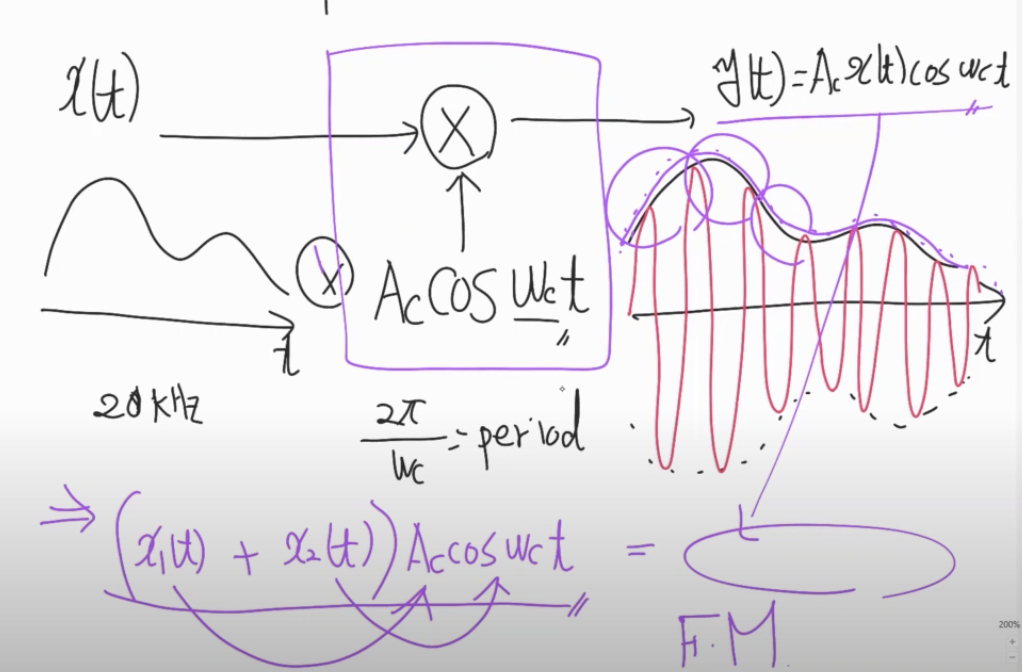 x(t)
X
y(t)=Ac x(t) cos wct
X
Ac cos wct
t
t
20 kHz
2π/wc = period
⇒ (x1(t) + x2(t)) Ac cos wct =
F.M.
200%